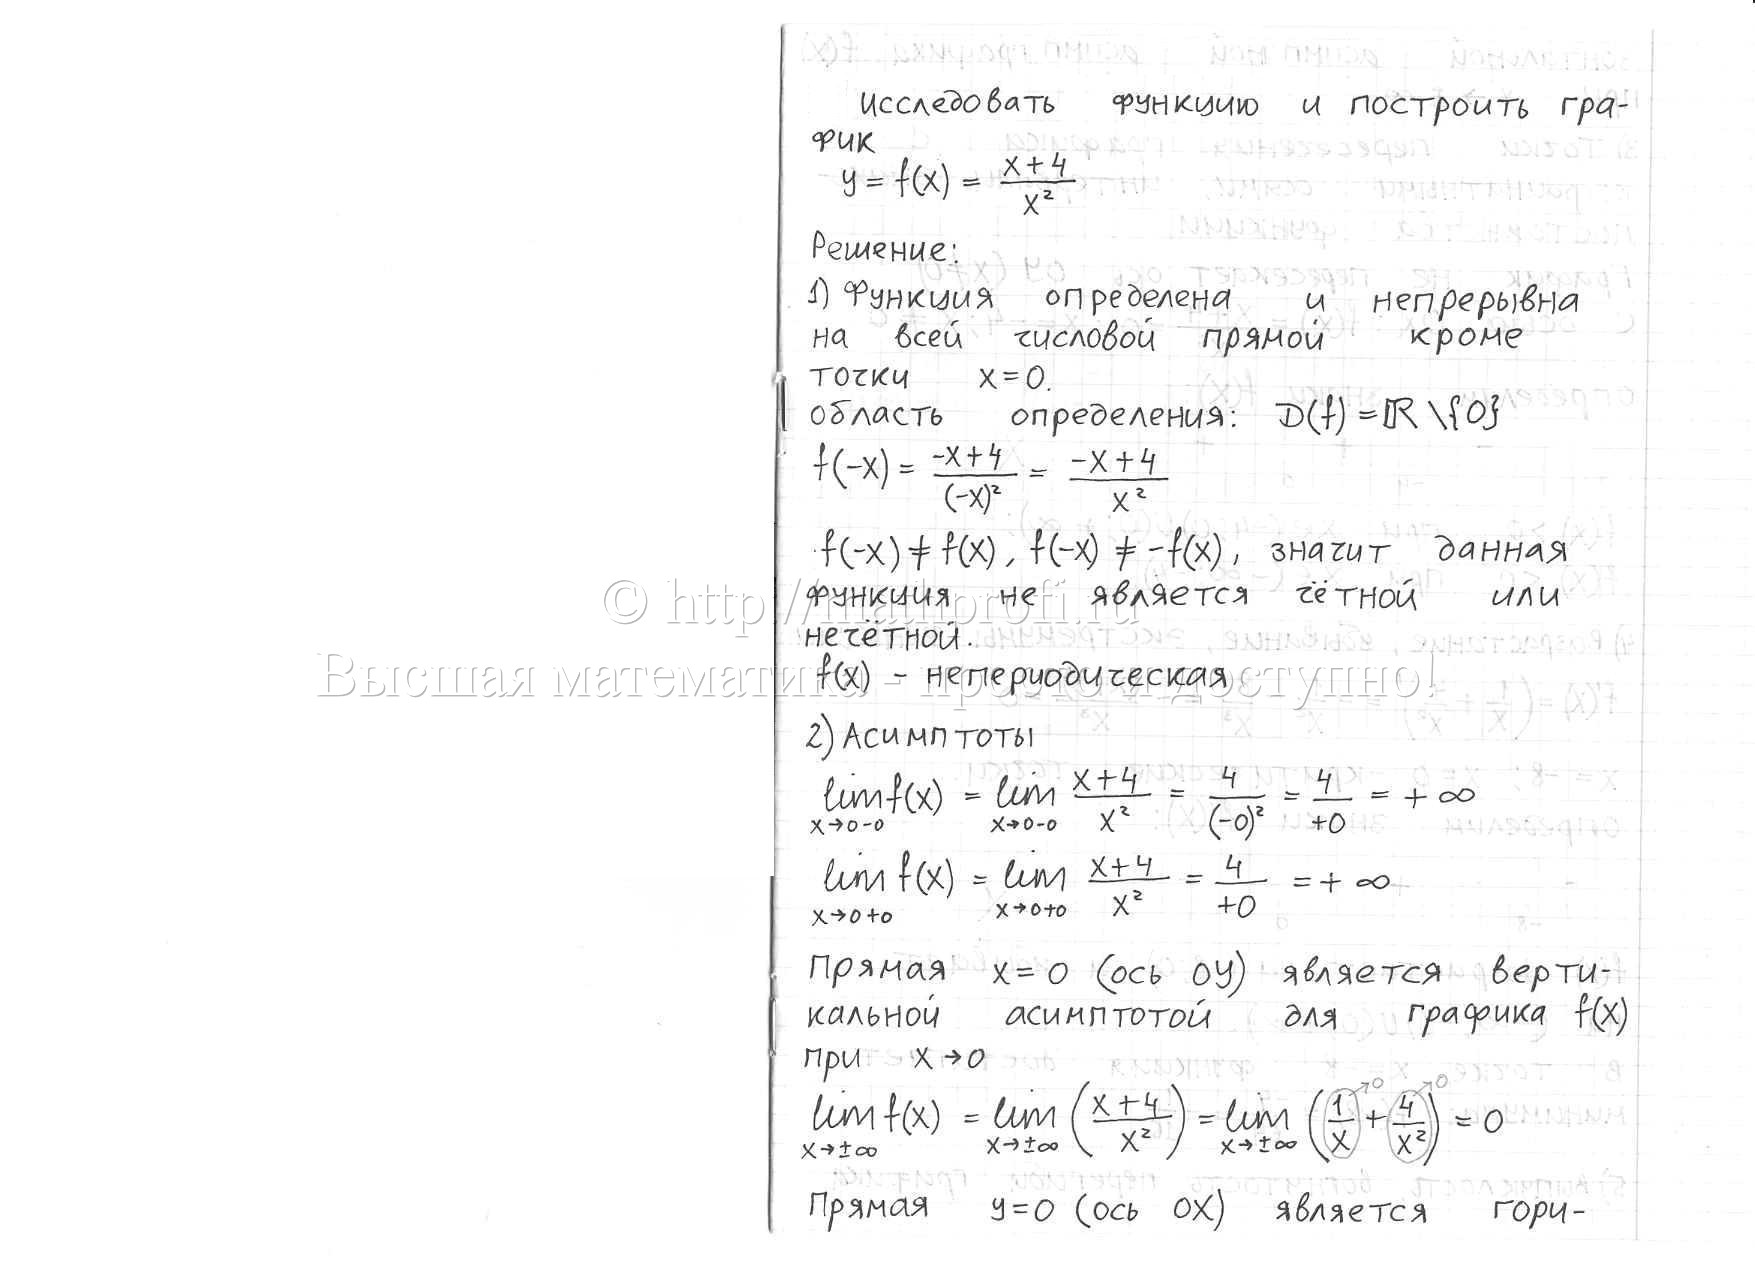 исследовать функцию и построить гра-
фик
y = f(x) = \frac{x+4}{x^2}
Решение:
1) Функция определена и непрерывна
на всей числовой прямой кроме
точки x=0.
область определения: D(f)=ℝ\{0}
f(-x) = \frac{-x+4}{(-x)^2} = \frac{-x+4}{x^2}
f(-x) ≠ f(x), f(-x) ≠ -f(x), значит данная
функция не является чётной или
нечётной.
f(x) - непериодическая
© http://mathprofi.ru
Высшая математика - просто и доступно!
2) Асимптоты
\lim_{x→0-0} f(x) = \lim_{x→0-0} \frac{x+4}{x^2} = \frac{4}{(-0)^2} = \frac{4}{+0} = +∞
\lim_{x→0+0} f(x) = \lim_{x→0+0} \frac{x+4}{x^2} = \frac{4}{+0} = +∞
Прямая x=0 (ось OY) является верти-
кальной асимптотой для графика f(x)
при x→0
\lim_{x→±∞} f(x) = \lim_{x→±∞} (\frac{x+4}{x^2}) = \lim_{x→±∞} (\frac{1}{x}^{→0} + \frac{4}{x^2}^{→0}) = 0
Прямая y=0 (ось OX) является гори-